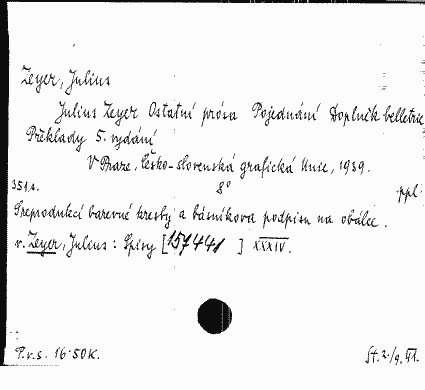 Zeyer, Julius
Julius Zeyer Ostatní prósa Pojednání Doplněk belletrie
Překlady 5. vydání
V Praze, Česko-slovenská grafická Unie, 1939.
351,4. 8° ppl.
S reprodukcí barevné kresby a básníkova podpisu na obálce.
v. Zeyer, Julius: Spisy [157441] XXXIV.
P.v.s. 16·50K. St.2./9.VI.